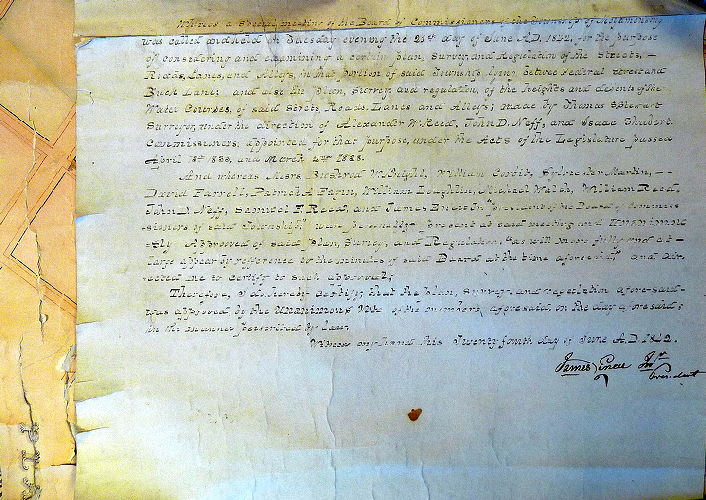 Whereas a Special meeting of the Board of Commissioners of the Township of Moyamensing
was called and held on Tuesday evening the 21st day of June A.D. 1842, for the purpose
of considering and examining a certain plan, Survey, and Regulation of the Streets,
Roads, Lanes, and Alleys, in that portion of said Township lying between Federal street and
Buck Lane; and also the plan, Survey, and regulation, of the heights and depths of the
Water Courses, of said Streets, Roads, Lanes and Alleys; made by Thomas
Surveyor, under the direction of Alexander W. Reid, John D. Neff, and Isaac Shubert
Commissioners; appointed for that purpose, under the Acts of the Legislature passed
April and March
And whereas Messrs William Martin,
David Farrell, Patrick William Loughlin, Michael Walsh, William Reed,
John D. Neff, Samuel F. Reed, and James Enue Jnr. President of the Board of Commis-
sioners of said Township, were personally present at said meeting and Unanimous
ly Approved of said plan, Survey, and Regulation, as will more fully and at
large appear by refference to the minutes of said Board at the time aforesaid, and dir-
ected me to certify to such approval;
Therefore, I do hereby certify, that the plan, survey, and regulation afore-said
was approved by the Unanimous Vote of the members, aforesaid, on the day aforesaid;
in the manner prescribed by law.
Witness my hand this Twenty fourth day of June A.D. 1842.
James Enue Jnr
President